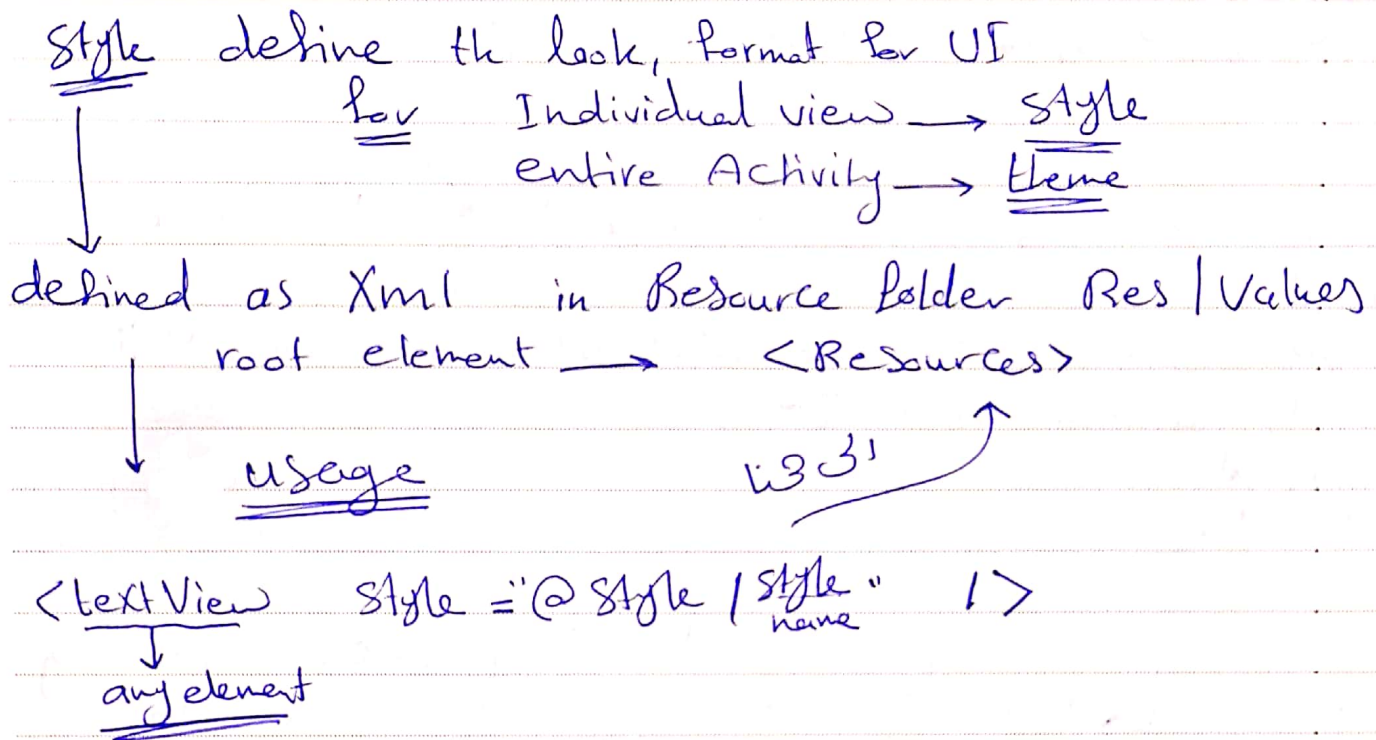 Style define the look, format for UI
for Individual view → style
entire Activity → theme
defined as Xml in Resource folder Res/Values
root element → <Resources>
usage
<textView style="@style/style name" />
any element